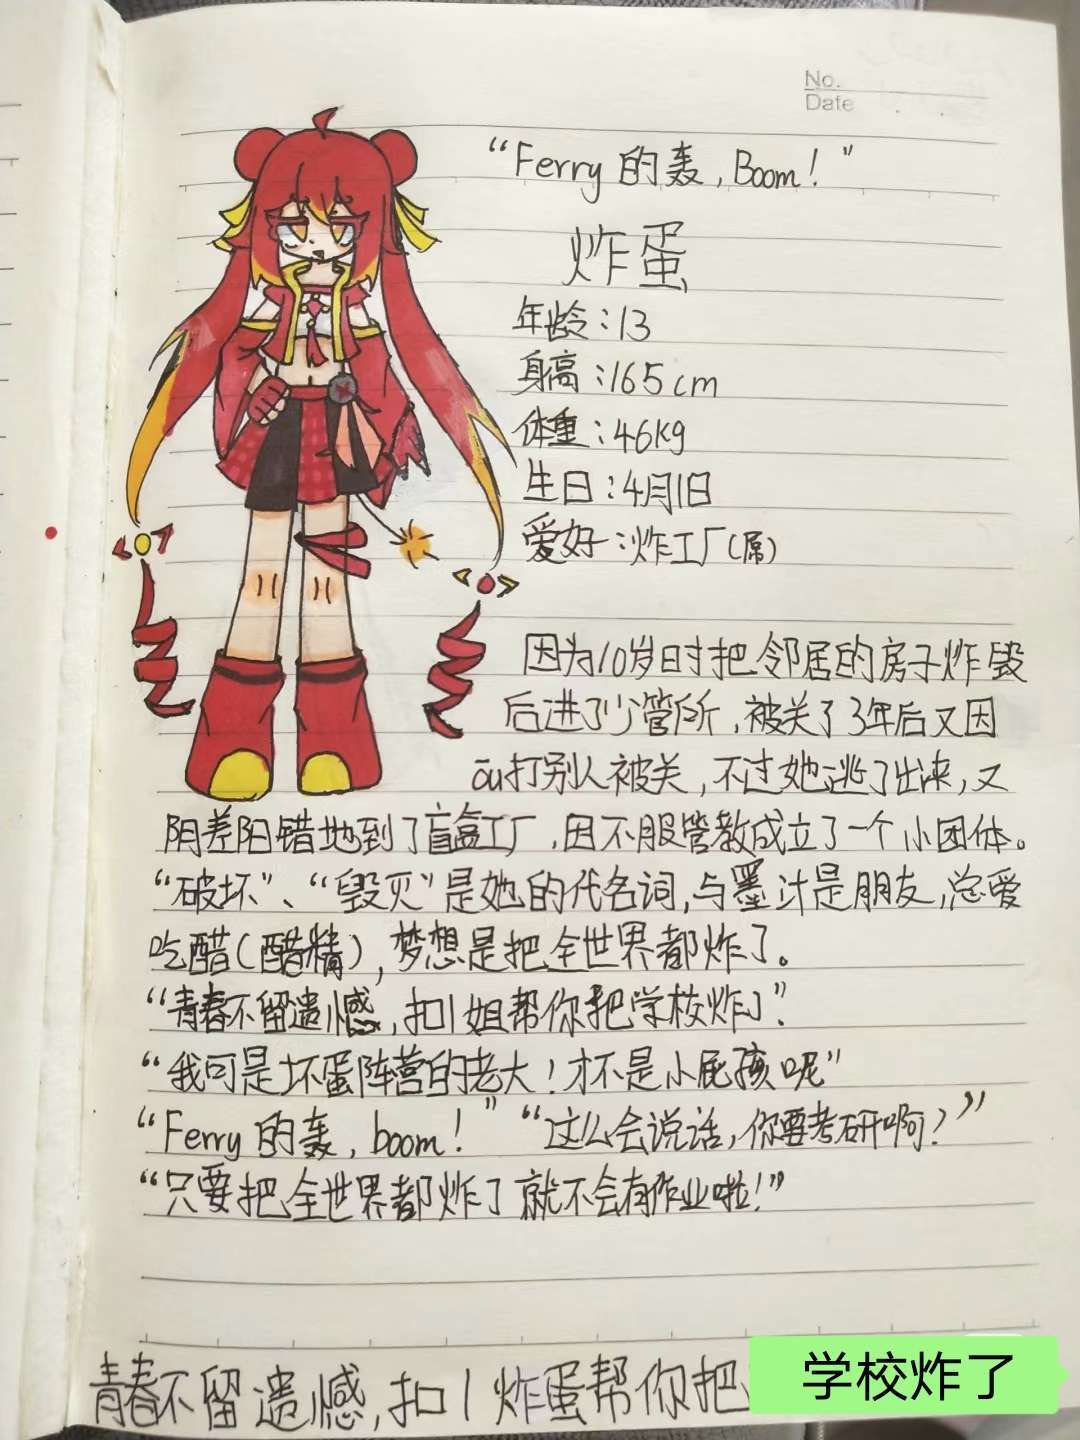 No.
Date
“Ferry 的轰，Boom！”
炸蛋
年龄：13
身高：165cm
体重：46kg
生日：4月1日
爱好：炸工厂(屑)
因为10岁时把邻居的房子炸毁
后进了少管所，被关了3年后又因
ōu打别人被关，不过她逃了出来，又
阴差阳错地到了盲盒工厂，因不服管教成立了一个小团体。
“破坏”、“毁灭”是她的代名词，与墨汁是朋友，总爱
吃醋(醋精)，梦想是把全世界都炸了。
“青春不留遗憾，扣1姐帮你把学校炸了”
“我可是坏蛋阵营的老大！才不是小屁孩呢”
“Ferry 的轰，boom！” “这么会说话，你要考研啊？”
“只要把全世界都炸了就不会有作业啦！”
青春不留遗憾，扣1炸蛋帮你把
学校炸了